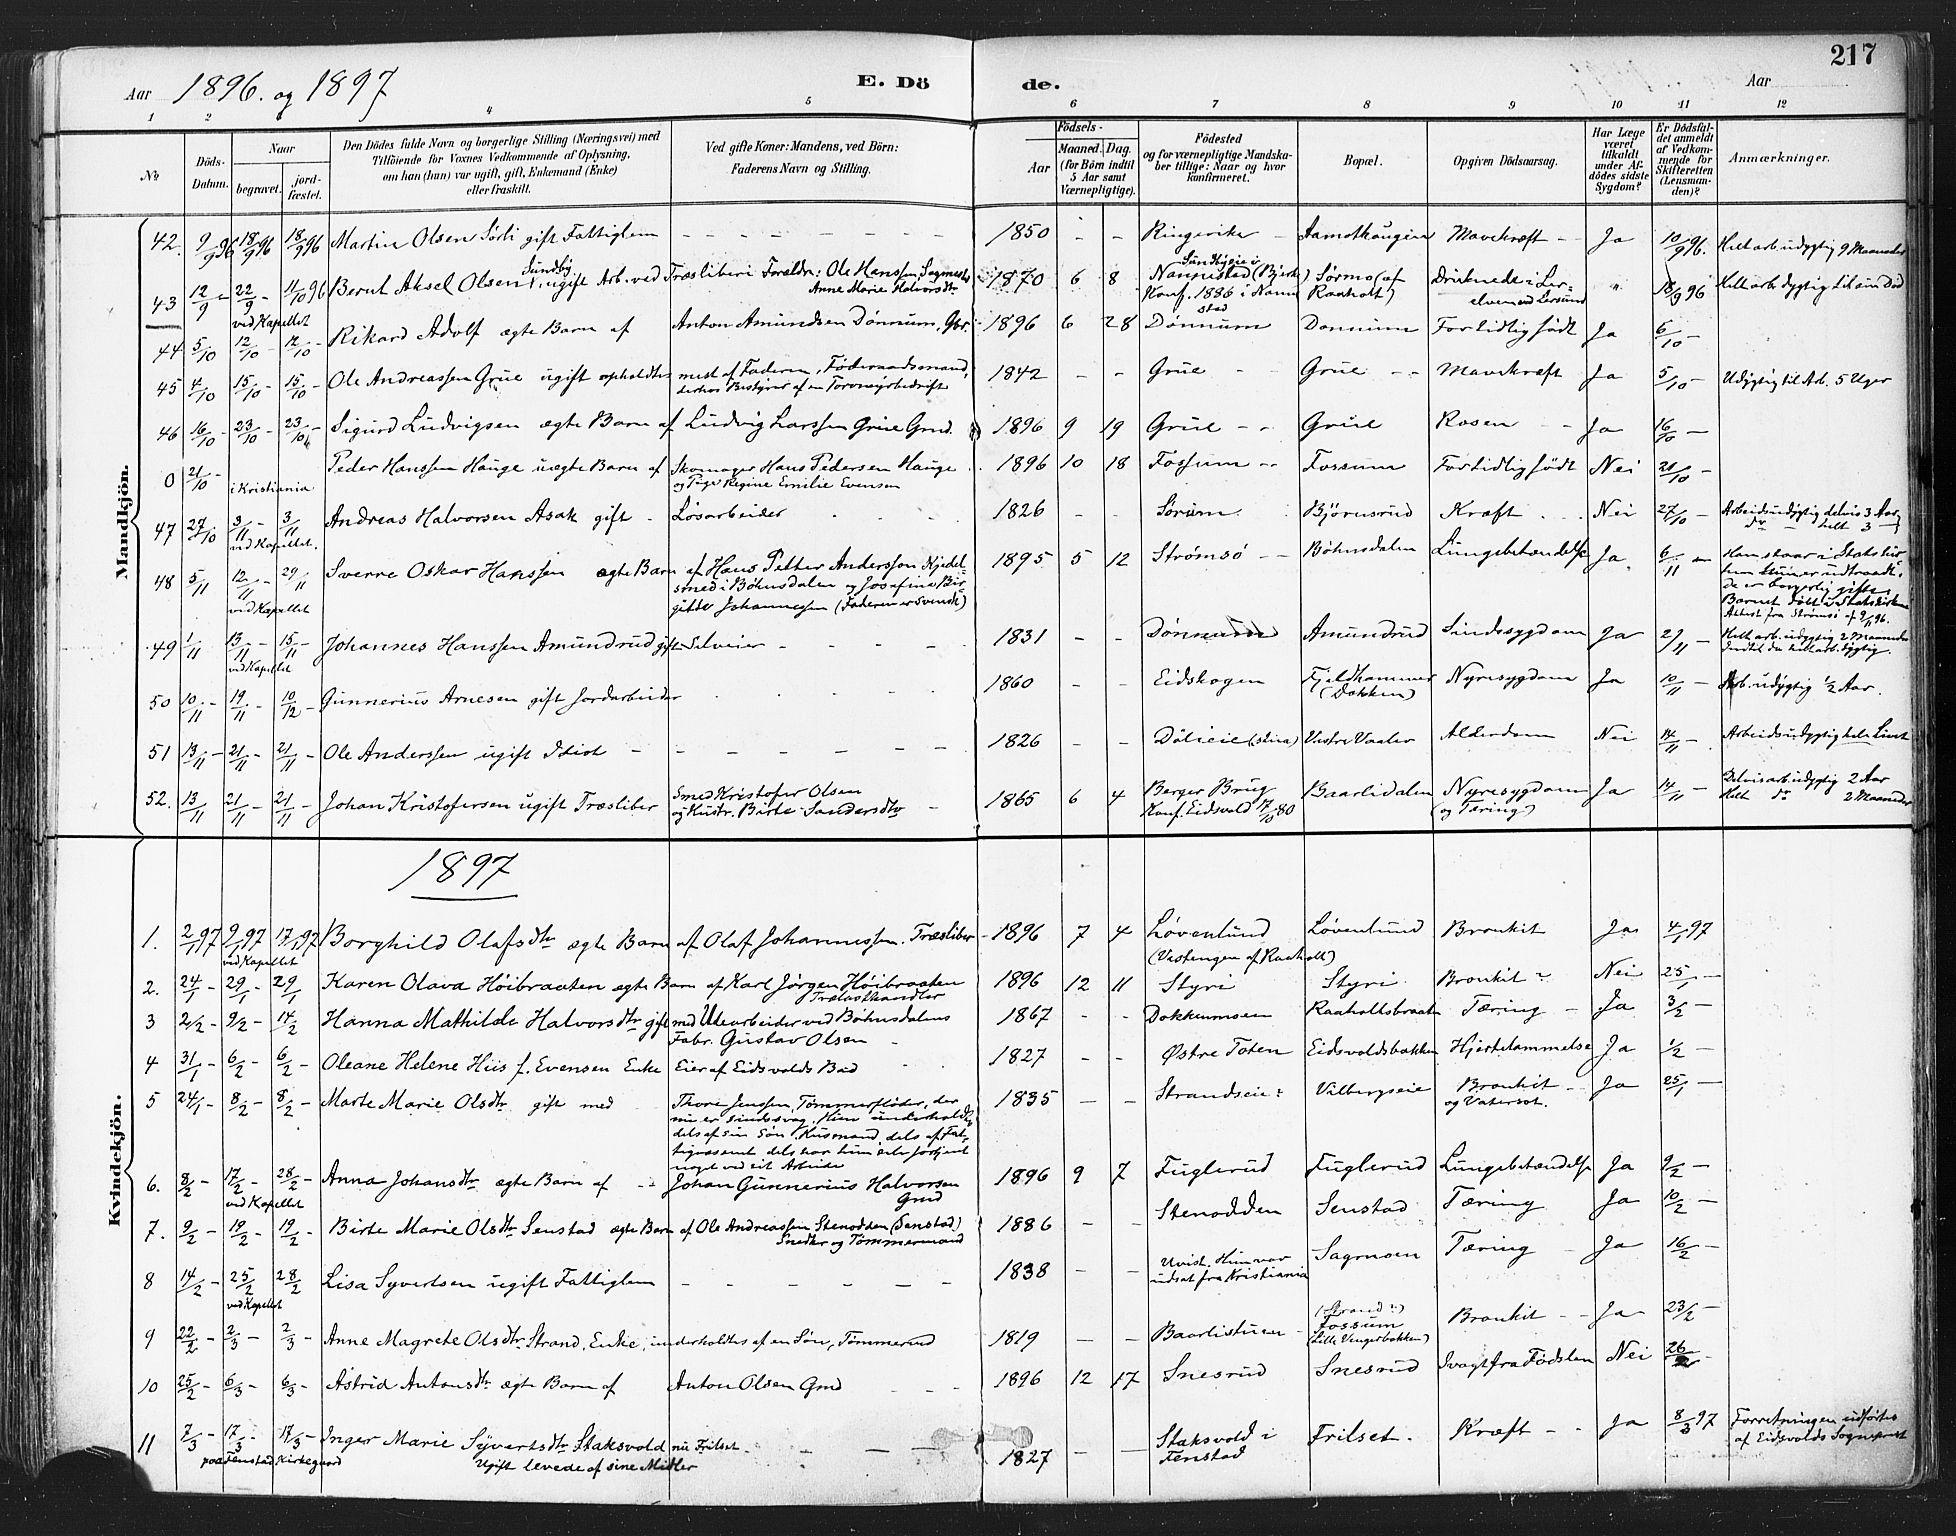 217
Aar 1896. og 1897
E. Döde.
Aar
1 2 3 4 5 6 7 8 9 10 11 12
No
Döds-Datum.
Naar begravet. jordfæstet.
Den Dödes fulde Navn og borgerlige Stilling (Næringsvei) med Tilföiende for Voxnes Vedkommende af Oplysning, om han (hun) var ugift, gift, Enkemand (Enke) eller fraskilt.
Ved gifte Koner: Mandens, ved Börn: Faderens Navn og Stilling.
Födsels-
Aar Maaned. Dag. (for Börn indtil 5 Aar samt Værnepligtige).
Födested og for værnepligtige Mandskaber tillige: Naar og hvor konfirmeret.
Bopæl.
Opgiven Dödsaarsag.
Har Læge været tilkaldt under Afdödes sidste Sygdom?
Er Dödsfaldet anmeldt af Vedkommende for Skifteretten (Lensmanden)?
Anmærkninger.
Mandkjön.
42. 9/9 96 18/9 96 18/9 96 Martin Olsen Sörli gift Fattiglem – – – 1850 – – Ringerike – Aamothaugen Mavekræft – Ja 10/9 96. Helt arb. udygtig 9 Maaneder
43 12/9 – 22/9 – 11/10 96 Bernt Aksel Olsen Sundby, ugift Arb. ved Træsliberi Foreldr: Ole Hanssen, Sagmester
ved Kapellet Anne Marie Halvorsdtr
1870 6 8 Sundbyeie i Nannestad (Bjerke) Konf. 1886 i Nannestad Sörmo (af Raaholt) Druknede i Lerelven ved Lersund " 18/9 96 Helt arb. dygtig til sin Död
44 5/10 12/10 – 12/10 – Rikard Adolf ægte Barn af Anton Amundsen Dönnum, Gbr. 1896 6 28 Dönnum Donnum Fortidlig födt Ja 6/10 –
45 4/10 15/10 – 15/10 – Ole Andreassen Grue ugift opholdtes mest af Faderen, Föderaadsmand, derhos Bestyrer af en Torvmyrbedrift 1842 – – Grue – Grue – – Mavekræft Ja 5/10 – Udygtig til Arb. 5 Uger
46 16/10 – 23/10 – 23/10 – Sigurd Ludvigsen ægte Barn af Ludvig Larssen Grue Gmd. 1896 9 19 Grue – – Grue Rosen – – Ja 16/10 –
0 21/10 – i Kristiania Peder Hanssen Hauge uægte Barn af Skomager Hans Pedersen Hauge og Pige Regine Emilie Evensen 1896 10 18 Fossum – – Fossum Fortidlig födt Nei 21/10 –
47 27/10 3/11 – 3/11 ved Kapellet. Andreas Halvorsen Asak gift – Lösarbeider 1826 – – Sörum Björnsrud Kræft Nei 27/10 – Arbeidsudygtig delvis 3 Aar do – helt 3
48 5/11 12/11 – 29/11 ved Kapellet Sverre Oskar Hanssen ægte Barn af Hans Petter Andersson Kjedelsmed i Böhnsdalen og Josefine Birgitte Johannessen (Faderen er Svensk) 1895 5 12 Strömsö – – Böhnsdalen Lungebetændelse Ja. 6/11 –
49 1/11 13/11 – 15/11 – ved Kapellet Johannes Hanssen Amundrud gift Selveier – – – 1831 – – Dönnum Amundrud Sindssygdom Ja 2/11 – Helt arb. udygtig 2 Maaneder Indtil da helt arb. dygtig.
50 10/11 – 19/11 – 10/12 – Gunnerius Arnesen gift Jordarbeider 1860 – – Eidskogen Fjeldhammer (Dokken) Nyresygdom Ja 10/11 – Arb. udygtig ½ Aar.
51 13/11 – 21/11 – 21/11 – Ole Anderssen ugift Idiot – – – 1826 – – Dölieie Vestre Vaaler Alderdom Nei 14/11 – Arbeidsudygtig hele Livet
52. 13/11 21/11 – 21/11 – Johan Kristofersen ugift Træsliber Smed Kristofer Olsen og Hustr. Birte Sandersdtr – 1865 6 4 Berger Brug Konf. Eidsvold 17/10 80 Baarlidalen Nyresygdom (og Tæring) Ja 14/11 – Delvis arb. udygtig 2 Aar Helt do 2 Maaneder
1897
Kvindekjön.
1. 2/1 97 9/1 97 17/1 97 ved Kapellet Borghild Olafsdtr ægte Barn af Olaf Johannessen. Træsliber – 1896 7 4 Lövenlund (Vestengen af Raaholt) Lövenlund Bronkit Ja 4/1 97
2. 24/1 – 29/1 – 29/1 Karen Olava Höibraaten ægte Barn af Karl Jörgen Höibraaten Trælasthandler 1896 12 11 Styri Styri Bronkit Nei 25/1 –
3 2/2 – 9/2 – 14/2 Hanna Mathilde Halvorsdtr gift med Udearbeider ved Böhnsdalens Fabr. Gustav Olsen 1867 – – Dokkenmoen Raaholtsbraaten Tæring – Ja 3/2 –
4 31/1 – 6/2 – 6/2 – Oleane Helene Hiis f. Evensen Enke Eier af Eidsvolds Bad 1827 – – Østre Toten Eidsvoldsbakken Hjertelammelse Ja 1/2 –
5 24/1 – 8/2 – 8/2 – Marte Marie Olsdtr gift med Thore Jenssen, Tömmerflöder, der nu er sindssvag. Hun underholdtes dels af sin Sön, Husmand, dels af Fattigvæsenet dels har hun selv fortjent noget ved sit Arbeide 1835 – – Strandseie Vilbergseie Bronkit – og Vatersot. Ja 25/1 –
6. 8/2 – 17/2 – 28/2 – ved Kapellet Anna Johansdtr ægte Barn af – Johan Gunnerius Halvorsen Gmd 1896 9 7 Fuglerud Fuglerud Lungebetændelse Ja 9/2 –
7. 9/2 – 19/2 – 19/2 – Birte Marie Olsdtr Senstad ægte Barn af Ole Andreassen Stenodden (Senstad) Snedker og Tömmermand 1886 – – Stenodden Senstad Tæring Ja 10/2 –
8 14/2 – 25/2 28/2 ved Kapellet Lisa Syvertsen ugift Fattiglem – – – 1838 – – Uvist. Hun var udsat fra Kristiania Sagmoen Tæring – Ja 16/2 –
9 22/2 – 2/3 – 2/3 – Anne Magrete Olsdtr Strand, Enke, underholdtes af en Sön, Tömmermd 1819 – – Baarlistuen – (Strand) Fossum (Lille Vengerbakken) Bronkit – – Ja – 23/2 –
10 25/2 – 6/3 – 6/3 – Astrid Antonsdtr ægte Barn af Anton Olsen Gmd – – – 1896 12 17 Snesrud Snesrud Svagt fra Födslen Nei 26/2 –
11 7/3 – 17/3 – 17/3 – paa Fenstad Kirkegaard Inger Marie Syvertsdtr Staksvold nu Frilset – – – Ugift levede af sine Midler 1827 – – Staksvold i Fenstad Frilset. Kræft – – Ja 8/3 97 Forretningen udförtes af Eidsvolds Sogneprest